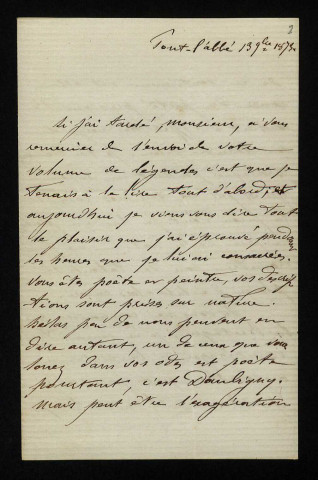 2
Pont-l'abbé 13 9bre 1873
Si j'ai tardé, monsieur, a vous
remercier de l'envoi de votre
volume de légendes c'est que je
tenais à la lire tout d'abord, et
aujourdhui je viens vous dire tout
le plaisir que j'ai éprouvé pendant
les heures que je lui ai consacrées.
Vous êtes poëte et peintre, vos descrip
tions sont prises sur nature.
helas peu de nous peuvent en
dire autant, un de ceux que vous
louez dans vos odes est poëte
pourtant, c'est Daubigny.
Mais peut être l'exagération